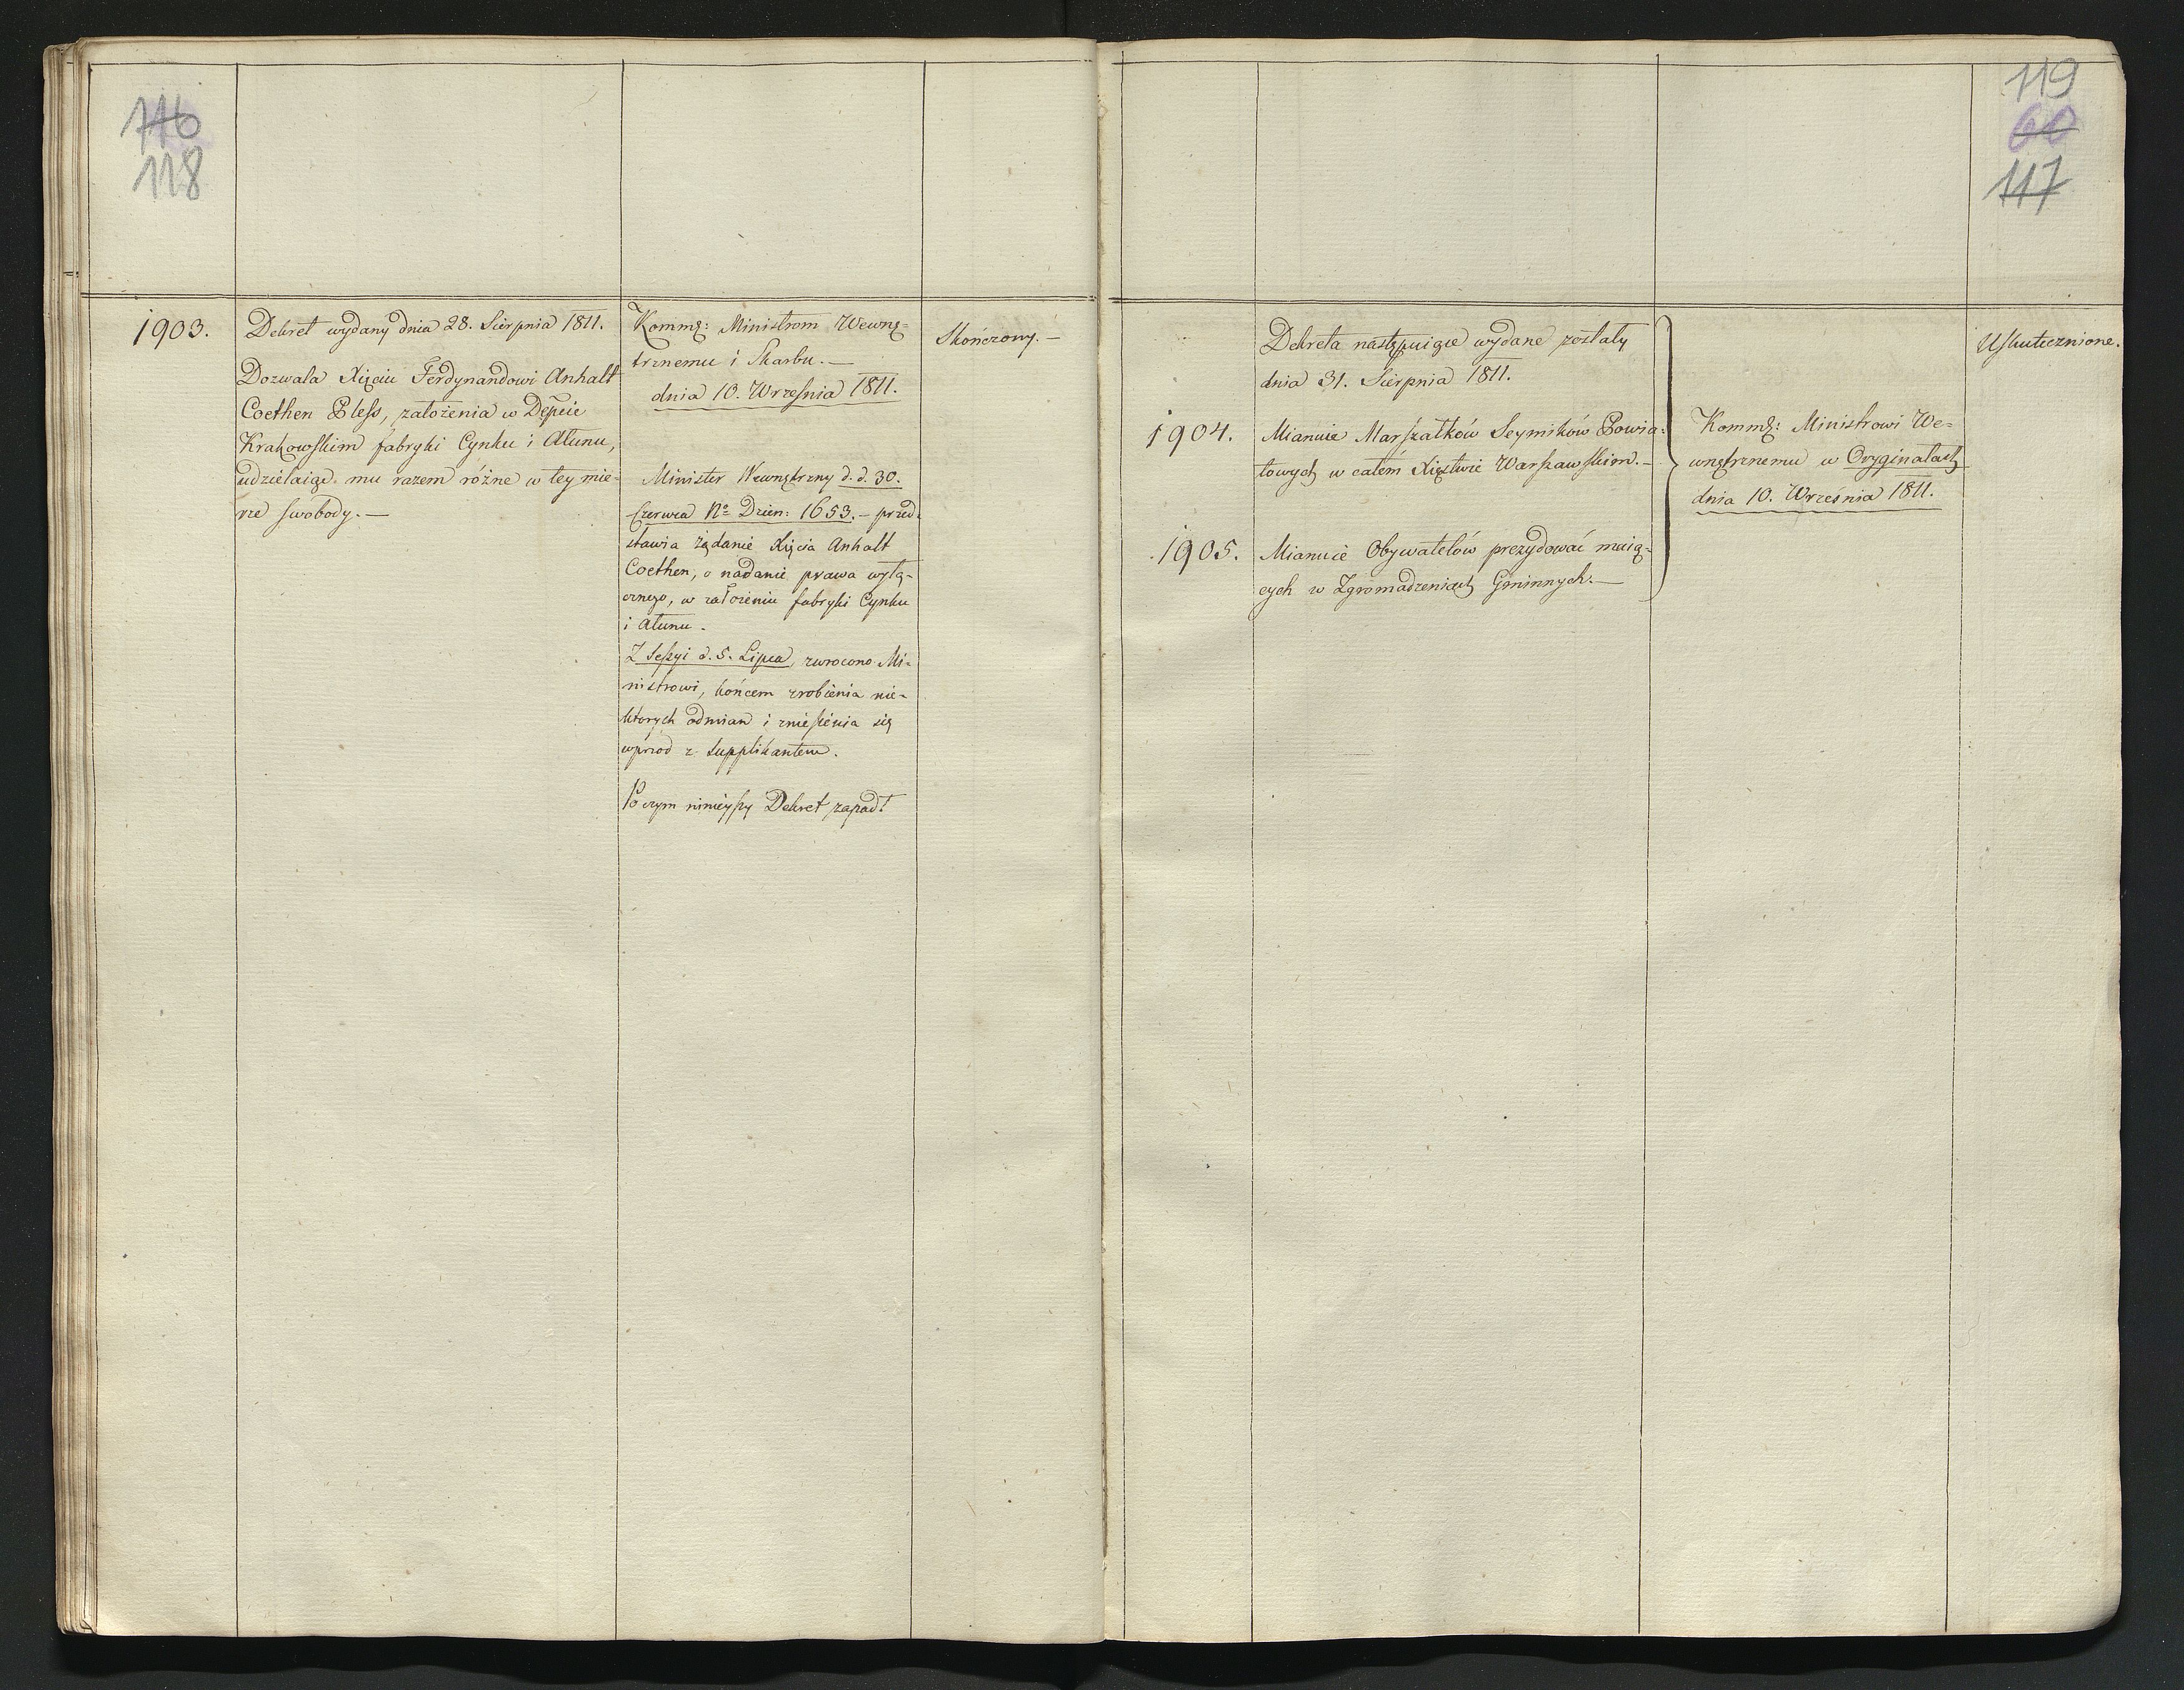 116
118
1903.
Dekret wydany dnia 28. Sierpnia 1811.
Dozwala Xięciu Ferdynandowi Anhalt
Coethen Pless, założenia w Depcie
Krakowskim fabryki Cynku i Ałunu,
udzielaiąc mu razem różne w tey mie-
rze swobody. —
Kommg: Ministrom Wewnę-
trznemu i Skarbu. —
dnia 10. Września 1811.
Minister Wewnętrzny d. d. 30.
Czerwca No Dzien: 1653. — przed-
stawia żądanie Xięcia Anhalt
Coethen, o nadanie prawa wyłą-
cznego, w założeniu fabryki Cynku
i Ałunu.
Z Sessyi d. 5. Lipca, zwrocono Mi-
nistrowi, końcem zrobienia nie-
ktorych odmian i zniesienia się
wprzod z Supplikantem.
Po czym ninieyszy Dekret zapadł
Skończony. —
119
60
117
Dekreta następuiące wydane zostały
dnia 31. Sierpnia 1811.
1904.
Mianuie Marszałków Seymików Powia-
towych w całém Xięstwie Warszawskim. —
1905.
Mianuie Obywatelów prezydować maią-
cych w Zgromadzeniach Gminnych. —
Kommg: Ministrowi We-
wnętrznemu w Oryginałach
dnia 10. Września 1811.
Uskutecznione.